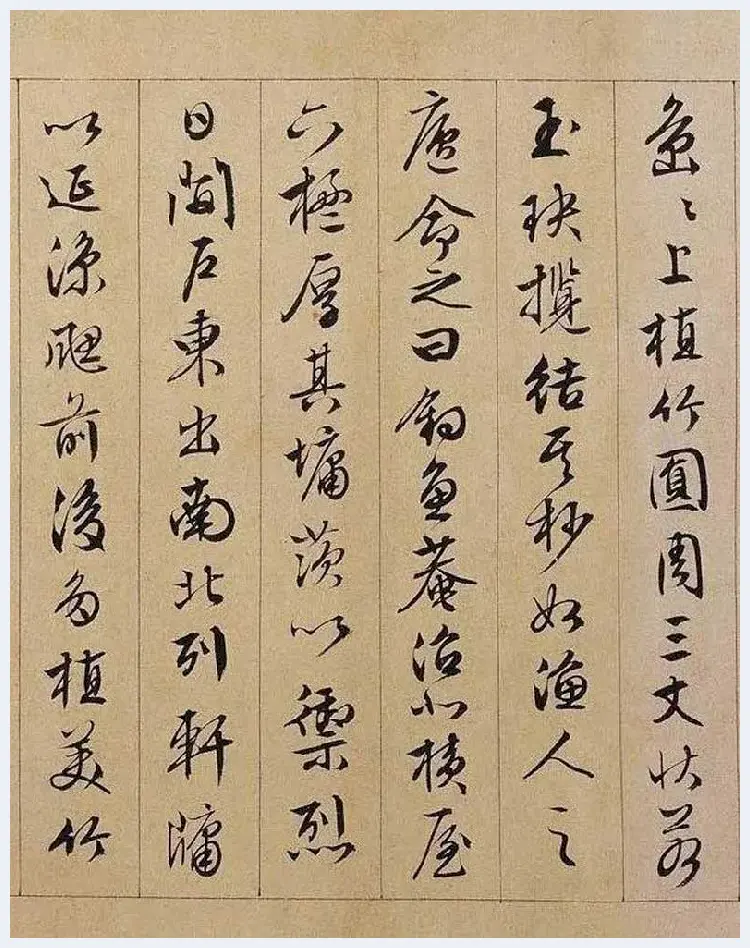 島〻上植竹圓周三丈状若
玉玦攬結其杪如漁人之
廬命之曰釣魚菴沼北橫屋
六楹厚其墉茨以禦烈
日開户東出南北列軒牖
以延涼颸前後多植美竹